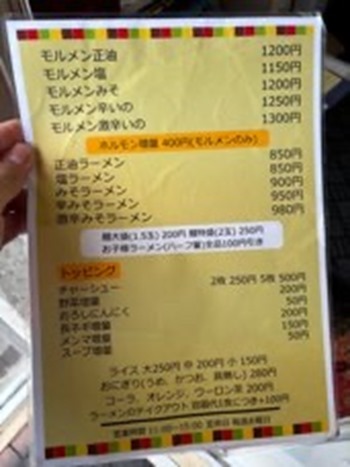 モルメン正油 1200円
モルメン塩 1150円
モルメンみそ 1200円
モルメン辛いの 1250円
モルメン激辛いの 1300円
ホルモン増量 400円(モルメンのみ)
正油ラーメン 850円
塩ラーメン 850円
みそラーメン 900円
辛みそラーメン 950円
激辛みそラーメン 980円
麺大盛(1.5玉) 200円 麺特盛(2玉) 250円
お子様ラーメン(ハーフ量)全品100円引き
トッピング
チャーシュー 2枚 250円 5枚 500円
野菜増量 200円
おろしにんにく 50円
長ネギ増量 200円
メンマ増量 150円
スープ増量 50円
ライス 大250円 中 200円 小 150円
おにぎり(うめ、かつお、具無し) 280円
コーラ、オレンジ、ウーロン茶 200円
ラーメンのテイクアウト 容器代1食につき+100円
営業時間 11:00~15:00 定休日 毎週水曜日